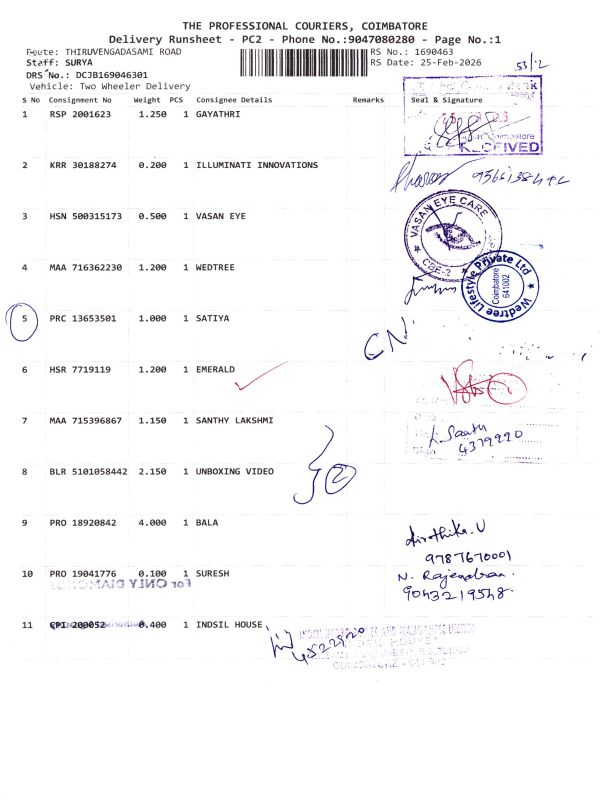 THE PROFESSIONAL COURIERS, COIMBATORE
Delivery Runsheet - PC2 - Phone No.:9047080280 - Page No.:1
Route: THIRUVENGADASAMI ROAD RS No.: 1690463
Staff: SURYA RS Date: 25-Feb-2026
DRS No.: DCJB169046301
Vehicle: Two Wheeler Delivery
S No Consignment No Weight PCS Consignee Details Remarks Seal & Signature
1 RSP 2001623 1.250 1 GAYATHRI
Coimbatore
RECEIVED
2 KRR 30188274 0.200 1 ILLUMINATI INNOVATIONS
3 HSN 500315173 0.500 1 VASAN EYE
VASAN EYE CARE
CBE-2
4 MAA 716362230 1.200 1 WEDTREE
Wedtree Lifestyle Private Ltd
Coimbatore
641002
5 PRC 13653501 1.000 1 SATIYA
CN
6 HSR 7719119 1.200 1 EMERALD
7 MAA 715396867 1.150 1 SANTHY LAKSHMI
4379990
8 BLR 5101058442 2.150 1 UNBOXING VIDEO
2
9 PRO 18920842 4.000 1 BALA
9787670001
10 PRO 19041776 0.100 1 SURESH
For ONLY DIAMOND
N. Rajendran.
9043219548
11 CPI 200052 0.400 1 INDSIL HOUSE